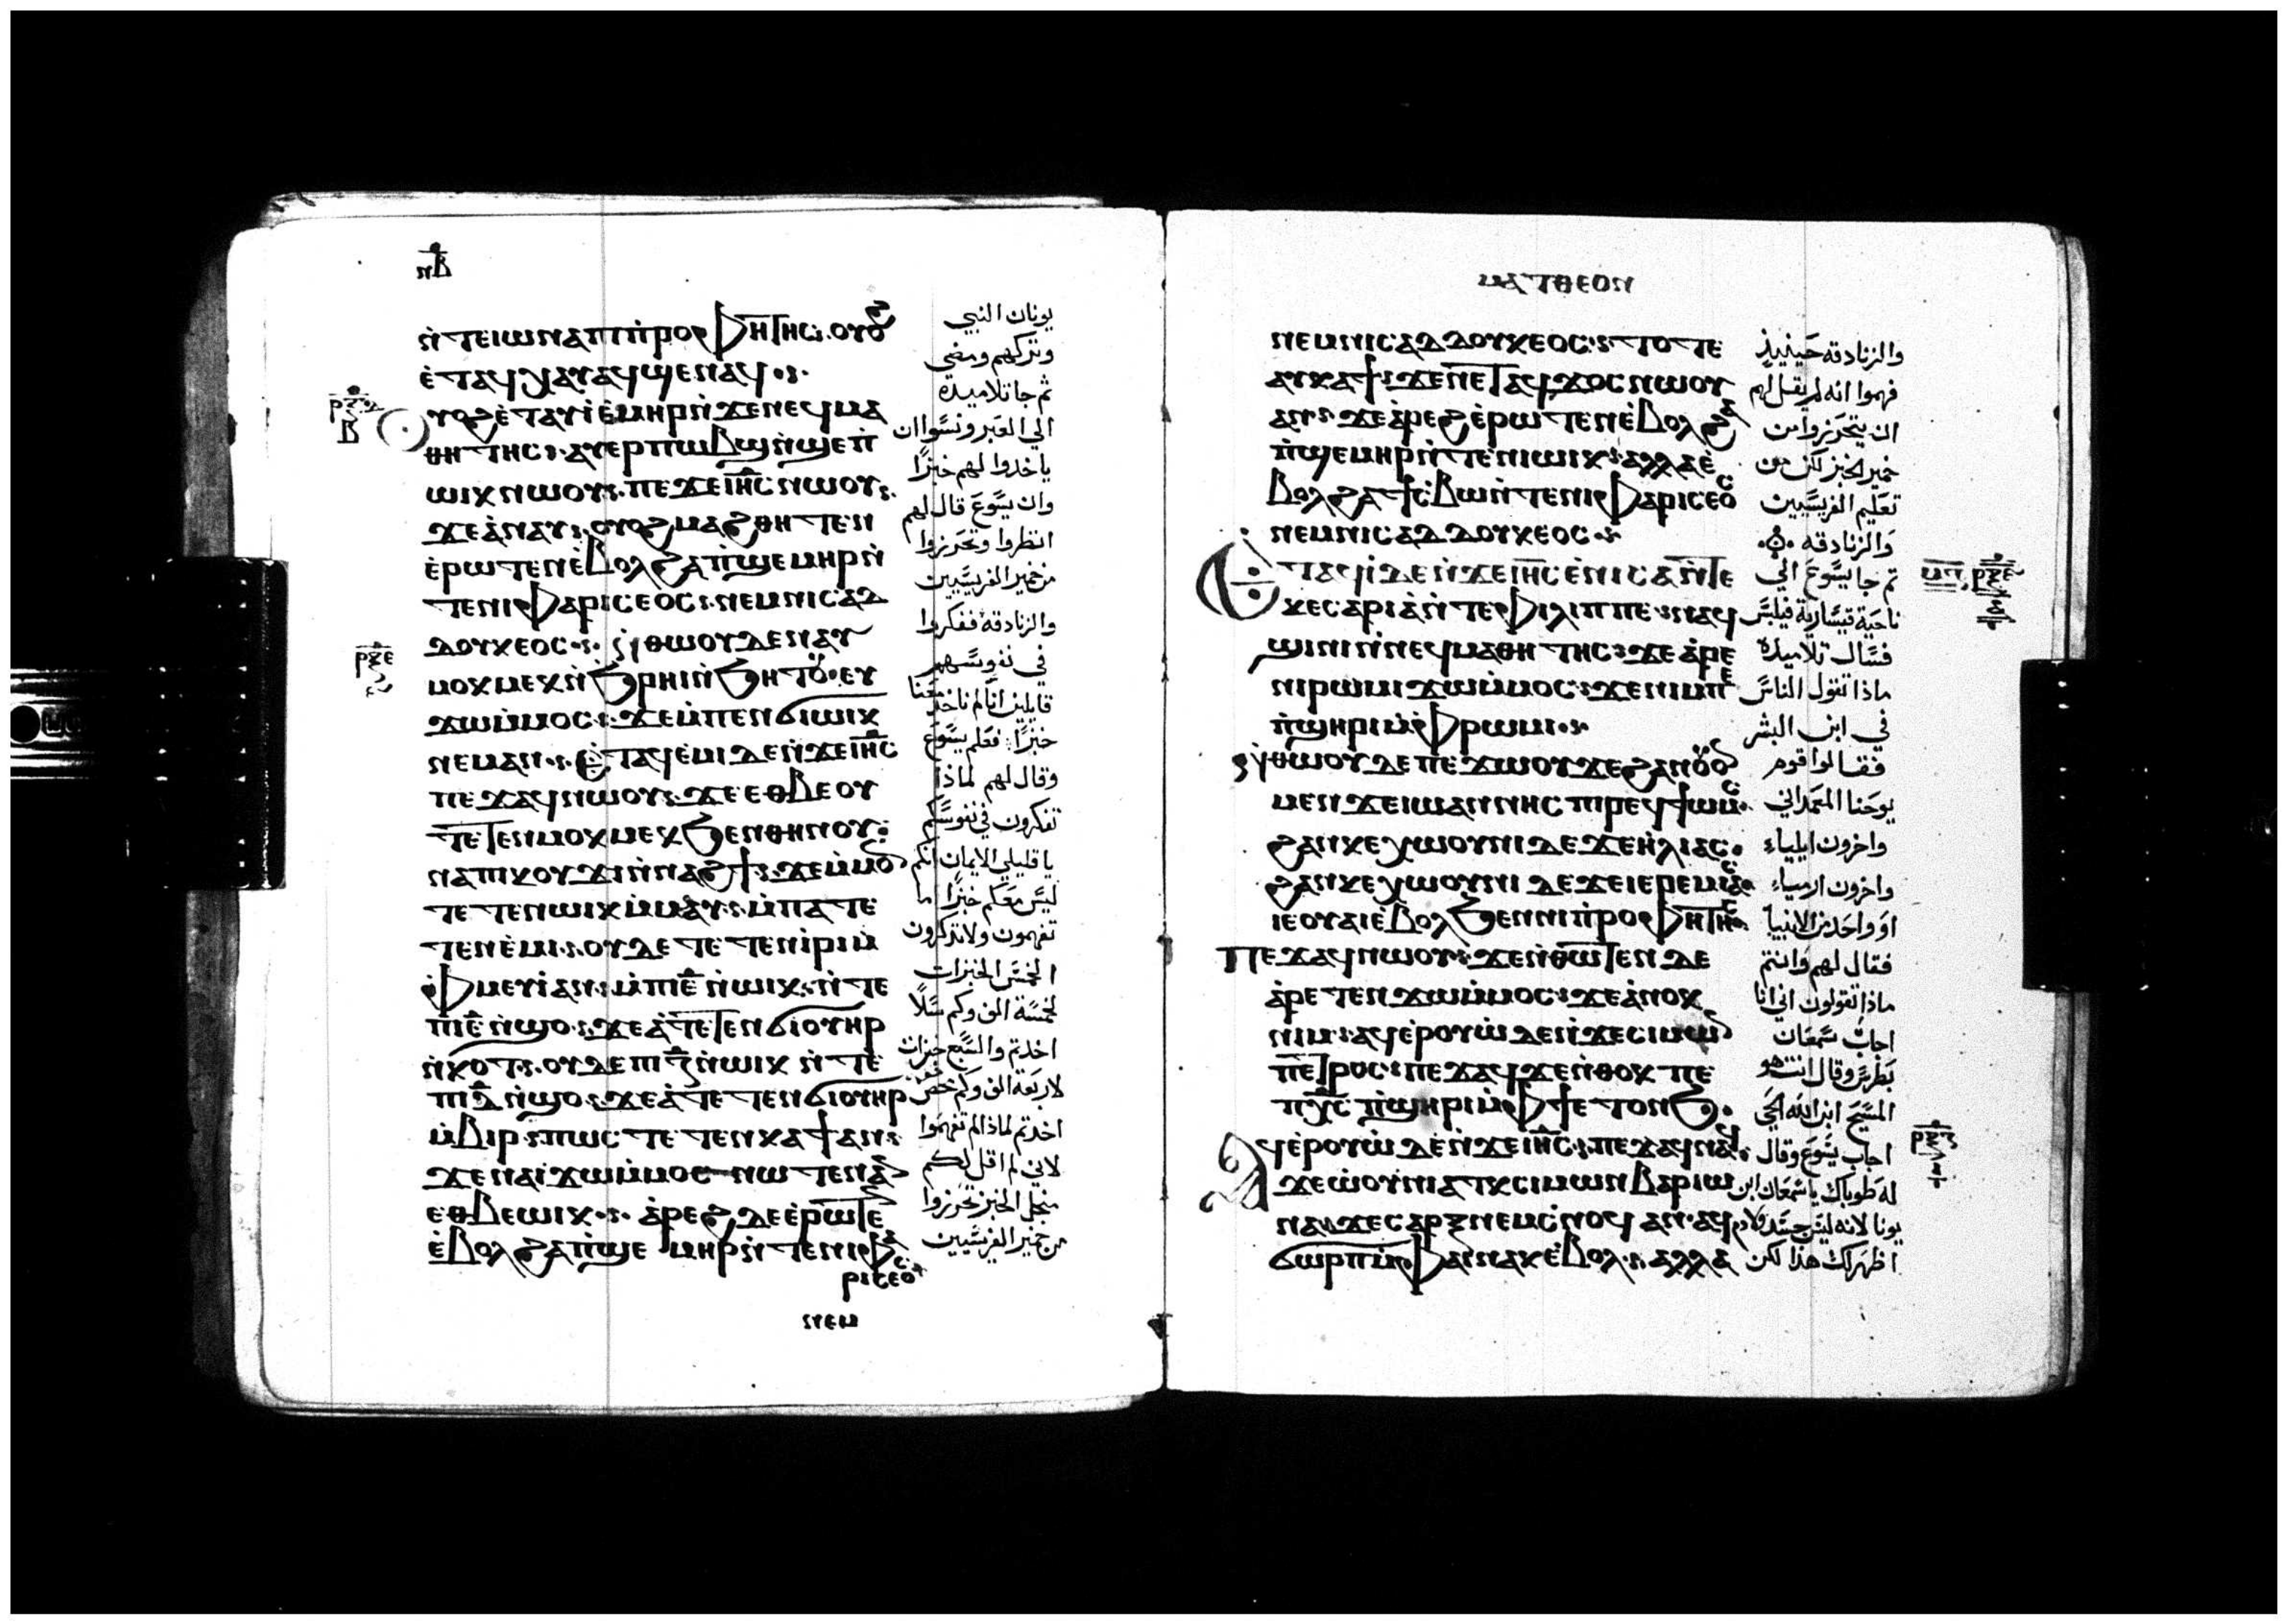 ⲛⲃ
ⲛ̀ⲧⲉⲓⲱⲛⲁⲡⲓⲡ̀ⲣⲟⲫⲏⲧⲏⲥ. ⲟⲩⲟϩ
ⲉ̀ⲧⲁϥⲭⲁⲩⲁϥϣⲉⲛⲁϥ
ⲟⲩⲟϩⲉ̀ⲧⲁⲩⲓ̀ⲉ̀ⲙⲏⲣⲛ̀ϫⲉⲛⲉϥⲙⲁ
ⲑⲏⲧⲏⲥ. ⲁⲩⲉⲣⲡⲱⲃϣⲛ̀ϣⲉⲡ
ⲱⲓⲕⲛⲱⲟⲩ. ⲡⲉϫⲉⲓⲏⲥⲛⲱⲟⲩ.
ϫⲉⲁ̀ⲛⲁⲩ. ⲟⲩⲟϩⲙⲁϩⲑⲏⲧⲉⲛ
ⲉ̀ⲣⲱⲧⲉⲛⲉ̀ⲃⲟⲗϩⲁⲡ̀ϣⲉⲙⲏⲣⲛ̀
ⲧⲉⲛⲓⲫⲁⲣⲓⲥⲉⲟⲥ. ⲛⲉⲙⲛⲓⲥⲁⲇ
ⲇⲟⲩⲕⲉⲟⲥ. ⲛ̀ⲑⲱⲟⲩⲇⲉⲛⲁⲩ
ⲙⲟⲕⲙⲉⲕⲛ̀ϧⲣⲏⲓⲛ̀ϧⲏⲧⲟⲩ. ⲉⲩ
ϫⲱⲙ̀ⲙⲟⲥ. ϫⲉⲙ̀ⲡⲉⲛϭⲓⲱⲓⲕ
ⲛⲉⲙⲁⲛ. ⲉ̀ⲧⲁϥⲉ̀ⲙⲓⲇⲉⲛ̀ϫⲉⲓⲏⲥ
ⲡⲉϫⲁϥⲛⲱⲟⲩ. ϫⲉⲉⲑⲃⲉⲟⲩ
ⲧⲉⲧⲉⲛⲙⲟⲕⲙⲉⲕϧⲉⲛⲑⲏⲛⲟⲩ
ⲛⲁⲡⲓⲕⲟⲩϫⲓⲛ̀ⲛⲁϩϯ. ϫⲉⲙ̀ⲙⲟ
ⲧⲉⲧⲉⲛⲱⲓⲕⲙ̀ⲙⲁⲩ. ⲙ̀ⲡⲁⲧⲉ
ⲧⲉⲛⲉ̀ⲙⲓ. ⲟⲩⲇⲉⲧⲉⲧⲉⲛⲓ̀ⲣⲓⲙ
ⲫ̀ⲙⲉⲩⲓ̀ⲁⲛ. ⲙ̀ⲡⲓⲉ̅ⲛ̀ⲱⲓⲕ. ⲛ̀ⲧⲉ
ⲡⲓⲉ̅ⲛ̀ϣⲟ. ϫⲉⲁ̀ⲧⲉⲧⲉⲛϭⲓⲟⲩⲏⲣ
ⲛ̀ⲕⲟⲧ. ⲟⲩⲇⲉⲡⲓⲍ̅ⲛ̀ⲱⲓⲕ ⲛ̀ⲧⲉ
ⲡⲓⲇ̅ⲛ̀ϣⲟ. ϫⲉⲁ̀ⲧⲉⲧⲉⲛϭⲓⲟⲩⲏⲣ
ⲙ̀ⲃⲓⲣ. ⲡⲱⲥⲧⲉⲧⲉⲛⲕⲁϯⲁⲛ
ϫⲉⲛⲁⲓϫⲱⲙ̀ⲙⲟⲥⲛⲱⲧⲉⲛⲁ
ⲉⲑⲃⲉⲱⲓⲕ. ⲁ̀ⲣⲉϩⲇⲉⲉ̀ⲣⲱⲧⲉ
ⲉ̀ⲃⲟⲗϩⲁⲡ̀ϣⲉⲙⲏⲣⲛ̀ⲧⲉⲛⲓⲫⲁ
ⲣⲓⲥⲉⲟⲥ
ⲛⲉⲙ
يونان النبي
وتركهم ومضى
ثم جا تلاميده
الي العبر ونسوا ان
ياخدوا لهم خبزًا
وان يسوع قال لهم
انظروا وتحرزوا
من خمير الفريسيين
والزنادقة ففكروا
في نفوسهم
قايلين اننا لم ناخد معنا
خبزًا: فعلم يسوع
وقال لهم لماذا
تفكرون في نفوسكم
يا قليلي الايمان انكم
ليس معكم خبزًا اما
تفهمون ولا تذكرون
الخمس الخبزات
لخمسة الف وكم سلًا
اخدتم والسبع خبزات
لاربعة الف وكم
اخدتم لماذا لم تفهموا
لاني لم اقل لكم
منجل الخبز تحرزوا
من خمير الفريسيين
ⲙⲁⲧⲑⲉⲟⲛ
ⲛⲉⲙⲛⲓⲥⲁⲇⲇⲟⲩⲕⲉⲟⲥ. ⲧⲟⲧⲉ
ⲁⲩⲕⲁϯ. ϫⲉⲛⲉⲧⲁϥϫⲟⲥⲛⲱⲟⲩ
ⲁⲛ. ϫⲉⲁ̀ⲣⲉϩⲉ̀ⲣⲱⲧⲉⲛⲉ̀ⲃⲟⲗϩⲁ
ⲡ̀ϣⲉⲙⲏⲣⲛ̀ⲧⲉⲛⲓⲱⲓⲕ. ⲁⲗⲗⲁⲉ̀
ⲃⲟⲗϩⲁϯⲥ̀ⲃⲱⲛ̀ⲧⲉⲛⲓⲫⲁⲣⲓⲥⲉⲟⲥ
ⲛⲉⲙⲛⲓⲥⲁⲇⲇⲟⲩⲕⲉⲟⲥ.
ⲉⲧⲁϥⲓ̀ⲇⲉⲛ̀ϫⲉⲓⲏⲥⲉ̀ⲛⲓⲥⲁⲛ̀ⲧⲉ
ⲕⲉⲥⲁⲣⲓⲁ̀ⲛ̀ⲧⲉⲫⲓⲗⲓⲡⲡⲉ. ⲛⲁϥ
ϣⲓⲛⲓⲛ̀ⲛⲉϥⲙⲁⲑⲏⲧⲏⲥ. ϫⲉⲁ̀ⲣⲉ
ⲛⲓⲣⲱⲙⲓϫⲱⲙ̀ⲙⲟⲥ. ϫⲉⲛⲓⲙⲡⲉ
ⲡ̀ϣⲏⲣⲓⲙ̀ⲫⲣⲱⲙⲓ.
ⲛ̀ⲑⲱⲟⲩⲇⲉⲡⲉϫⲱⲟⲩϫⲉϩⲁⲛⲟⲩⲟ
ⲙⲉⲛϫⲉⲓⲱⲁⲛⲛⲏⲥⲡⲓⲣⲉϥϯⲱⲙⲥ
ϩⲁⲛⲕⲉⲭⲱⲟⲩⲛⲓⲇⲉϫⲉⲏⲗⲓⲁⲥ.
ϩⲁⲛⲕⲉⲭⲱⲟⲩⲛⲓⲇⲉϫⲉⲓⲉⲣⲉⲙⲓⲁⲥ
ⲓⲉⲟⲩⲁⲓⲉ̀ⲃⲟⲗϧⲉⲛⲛⲓⲡ̀ⲣⲟⲫⲏⲧⲏⲥ
ⲡⲉϫⲁϥⲛⲱⲟⲩ. ϫⲉⲛ̀ⲑⲱⲧⲉⲛⲇⲉ
ⲁ̀ⲣⲉⲧⲉⲛϫⲱⲙ̀ⲙⲟⲥ. ϫⲉⲁ̀ⲛⲟⲕ
ⲛⲓⲙ. ⲁϥⲉ̀ⲣⲟⲩⲱ̀ⲇⲉⲛ̀ϫⲉⲥⲓⲙⲱⲛ
ⲡⲉⲧⲣⲟⲥ. ⲡⲉϫⲁϥϫⲉⲛ̀ⲑⲟⲕⲡⲉ
ⲡⲭⲥ ⲡ̀ϣⲏⲣⲓⲙ̀ⲫϯⲉⲧⲟⲛϧ.
ⲁϥⲉ̀ⲣⲟⲩⲱ̀ⲇⲉⲛ̀ϫⲉⲓⲏⲥ. ⲡⲉϫⲁϥⲛⲁϥ
ϫⲉⲱ̀ⲟⲩⲛⲓⲁⲧⲕⲥⲓⲙⲱⲛⲃⲁⲣⲓⲱ
ⲛⲁϫⲉⲥⲁⲣⲝⲛⲉⲙⲥ̀ⲛⲟϥⲁⲛ. ⲁϥ
ϭⲱⲣⲡⲙ̀ⲫⲁⲓⲛⲁⲕⲉ̀ⲃⲟⲗ. ⲁⲗⲗⲁ
والزنادقه حينيذٍ
فهموا انه لم يقل لهم
ان يتحرزوا من
خمير الخبز لكن من
تعليم الفريسيين
والزنادقه
ثم جا يسوع الي
ناحية قيسارية فيلبس
فسال تلاميده
ماذا تقول الناس
في ابن البشر
فقالوا قوم
يوحنا المعمداني
واخرون ايلياء
واخرون ارمياء
او واحد من الانبيا
فقال لهم وانتم
ماذا تقولون اني انا
اجاب سمعان
بطرس وقال انت هو
المسيح ابن الله الحي
اجاب يسوع وقال
له طوباك يا سمعان ابن
يونا لانه ليس جسد ولا دم
اظهر لك هذا لكن